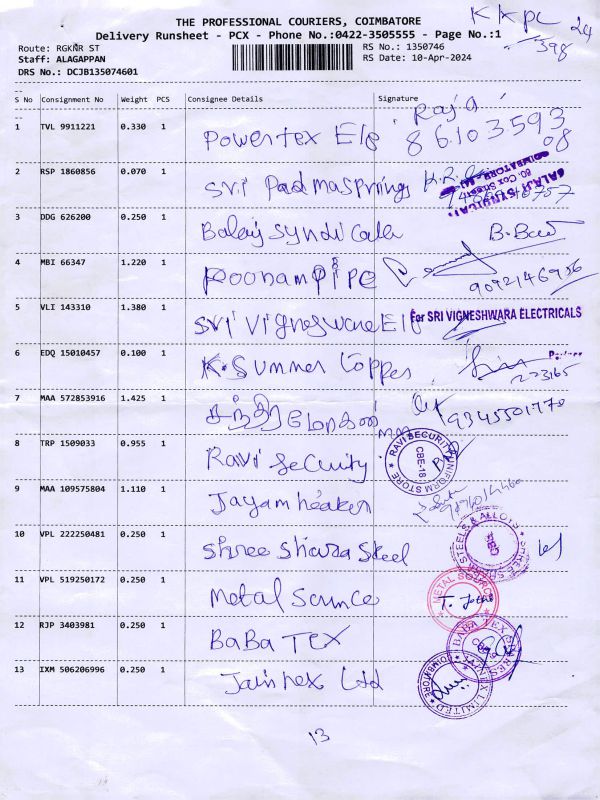 THE PROFESSIONAL COURIERS, COIMBATORE
Delivery Runsheet - PCX - Phone No.:0422-3505555 - Page No.:1
KKPC 24
398
Route: RGKNR ST
RS No.: 1350746
Staff: ALAGAPPAN
RS Date: 10-Apr-2024
DRS No.: DCJB135074601
S No Consignment No Weight PCS Consignee Details Signature
1 TVL 9911221 0.330 1 Powertex Ele Raja
86103593
08
2 RSP 1860856 0.070 1 Sri Padmasprings K.R.
BALAJI SYNDICATE
60, Cox Street
COIMBATORE
3 DDG 626200 0.250 1 Balaji Syndicate
4 MBI 66347 1.220 1 Poonam Pipe 9092146956
5 VLI 143310 1.380 1 Sri Vigneswara Ele For SRI VIGNESHWARA ELECTRICALS
6 EDQ 15010457 0.100 1 K. Summer Copper 223165
7 MAA 572853916 1.425 1 சந்திரமோகன் 9345501770
8 TRP 1509033 0.955 1 Ravi Security RAVI SECURITY UNIFORM STORE CBE-18
9 MAA 109575804 1.110 1 Jayam
10 VPL 222250481 0.250 1 Shree Shiara Steel STEELS & ALLOYS
11 VPL 519250172 0.250 1 Metal Scrunce METAL SOURCE T. Jothi
12 RJP 3403981 0.250 1 BaBa TEX BABA TEX
13 IXM 506206996 0.250 1 Jaintex Ltd JAINTEX LIMITED COIMBATORE
13